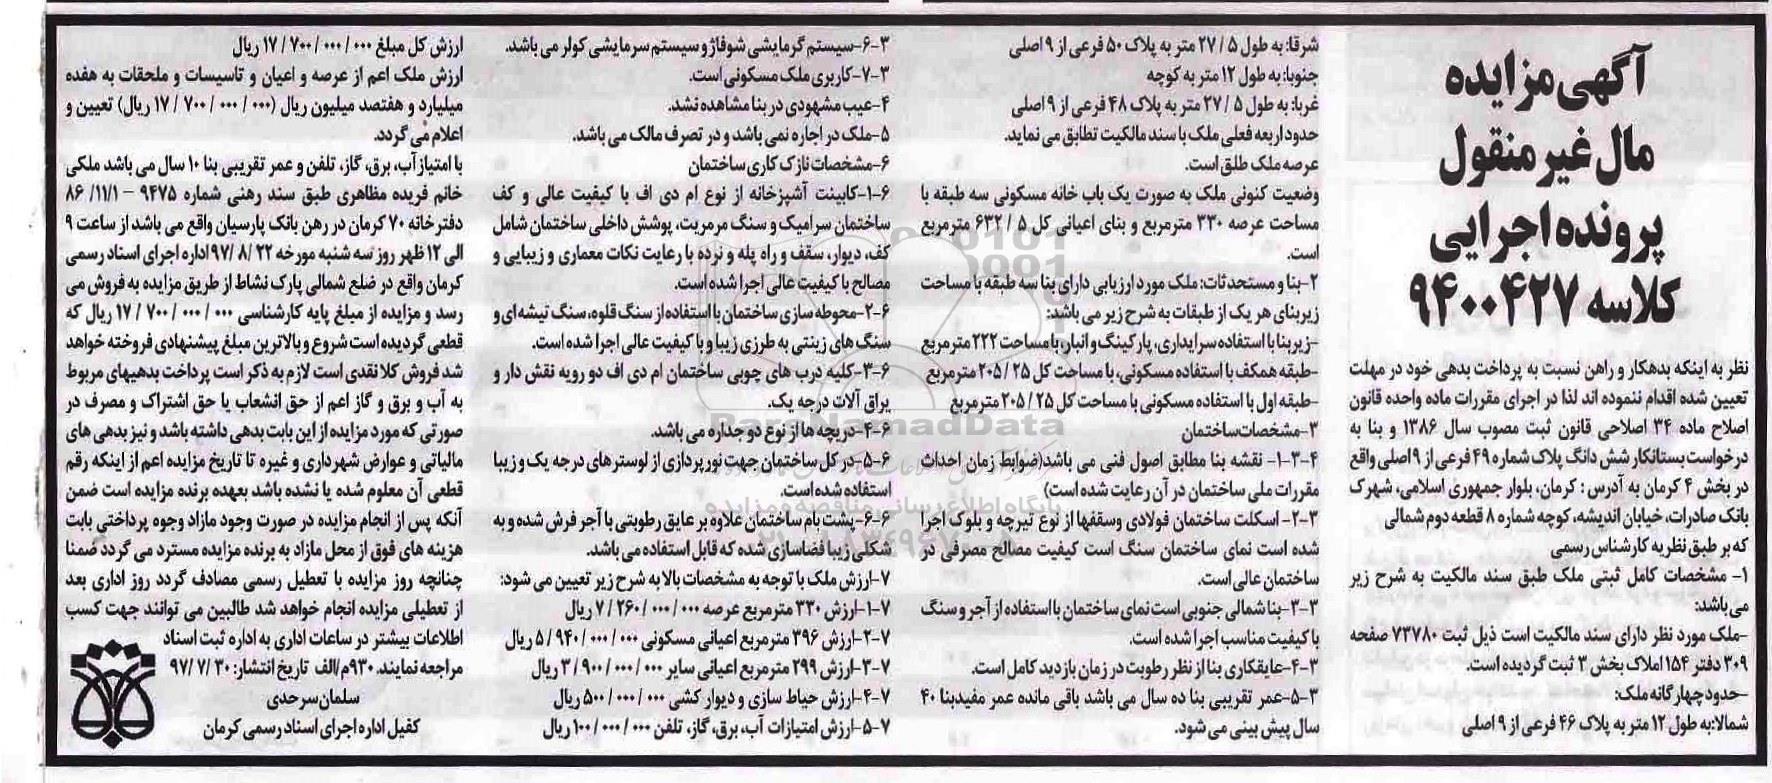 آگهی مزایده
مال غیر منقول
پرونده اجرایی
کلاسه ۹۴۰۰۴۲۷
نظر به اینکه بدهکار و راهن نسبت به پرداخت بدهی خود در مهلت
تعیین شده اقدام ننموده اند لذا در اجرای مقررات ماده واحده قانون
اصلاح ماده ۳۴ اصلاحی قانون ثبت مصوب سال ۱۳۸۶ و بنا به
درخواست بستانکار شش دانگ پلاک شماره ۴۹ فرعی از ۹ اصلی واقع
در بخش ۴ کرمان به آدرس : کرمان، بلوار جمهوری اسلامی، شهرک
بانک صادرات، خیابان اندیشه، کوچه شماره ۸ قطعه دوم شمالی
که بر طبق نظریه کارشناس رسمی
۱- مشخصات کامل ثبتی ملک طبق سند مالکیت به شرح زیر
می باشد:
-ملک مورد نظر دارای سند مالکیت است ذیل ثبت ۷۳۷۸۰ صفحه
۳۰۹ دفتر ۱۵۴ املاک بخش ۳ ثبت گردیده است.
-حدود چهارگانه ملک:
شمالا:به طول ۱۲ متر به پلاک ۴۶ فرعی از ۹ اصلی
شرقا: به طول ۵ / ۲۷ متر به پلاک ۵۰ فرعی از ۹ اصلی
جنوبا: به طول ۱۲ متر به کوچه
غربا: به طول ۵ / ۲۷ متر به پلاک ۴۸ فرعی از ۹ اصلی
حدود اربعه فعلی ملک با سند مالکیت تطابق می نماید.
عرصه ملک طلق است.
وضعیت کنونی ملک به صورت یک باب خانه مسکونی سه طبقه با
مساحت عرصه ۳۳۰ مترمربع و بنای اعیانی کل ۵ / ۶۳۲ مترمربع
است.
۲-بنا و مستحدثات: ملک مورد ارزیابی دارای بنا سه طبقه با مساحت
زیربنای هر یک از طبقات به شرح زیر می باشد:
-زیربنا با استفاده سرایداری، پارکینگ و انبار، با مساحت ۲۲۲ مترمربع
-طبقه همکف با استفاده مسکونی، با مساحت کل ۲۵ / ۲۰۵ مترمربع
-طبقه اول با استفاده مسکونی با مساحت کل ۲۵ / ۲۰۵ مترمربع
۳-مشخصات ساختمان
۱-۳-۴- نقشه بنا مطابق اصول فنی می باشد(ضوابط زمان احداث
مقررات ملی ساختمان در آن رعایت شده است)
۲-۳- اسکلت ساختمان فولادی وسقفها از نوع تیرچه و بلوک اجرا
شده است نمای ساختمان سنگ است کیفیت مصالح مصرفی در
ساختمان عالی است.
۳-۳-بنا شمالی جنوبی است نمای ساختمان با استفاده از آجر و سنگ
با کیفیت مناسب اجرا شده است.
۳-۴-عایقکاری بنا از نظر رطوبت در زمان بازدید کامل است.
۳-۵-عمر تقریبی بنا ده سال می باشد باقی مانده عمر مفید بنا ۴۰
سال پیش بینی می شود.
۳-۶-سیستم گرمایشی شوفاژ و سیستم سرمایشی کولر می باشد.
۳-۷-کاربری ملک مسکونی است.
۴-عیب مشهودی در بنا مشاهده نشد.
۵-ملک در اجاره نمی باشد و در تصرف مالک می باشد.
۶-مشخصات نازک کاری ساختمان
۶-۱-کابینت آشپزخانه از نوع ام دی اف با کیفیت عالی و کف
ساختمان سرامیک و سنگ مرمریت، پوشش داخلی ساختمان شامل
کف، دیوار، سقف و راه پله و نرده با رعایت نکات معماری و زیبایی و
مصالح با کیفیت عالی اجرا شده است.
۶-۲-محوطه سازی ساختمان با استفاده از سنگ قلوه، سنگ تیشه ای و
سنگ های زینتی به طرزی زیبا و با کیفیت عالی اجرا شده است.
۶-۳-کلیه درب های چوبی ساختمان ام دی اف دو رویه نقش دار و
یراق آلات درجه یک.
۶-۴-دریچه ها از نوع دو جداره می باشد.
۶-۵-در کل ساختمان جهت نورپردازی از لوسترهای درجه یک و زیبا
استفاده شده است.
۶-۶-پشت بام ساختمان علاوه بر عایق رطوبتی با آجر فرش شده و به
شکلی زیبا فضاسازی شده که قابل استفاده می باشد.
۷-ارزش ملک با توجه به مشخصات بالا به شرح زیر تعیین می شود:
۷-۱-ارزش ۳۳۰ مترمربع عرصه ۰۰۰ / ۰۰۰ / ۲۶۰ / ۷ ریال
۷-۲-ارزش ۳۹۶ مترمربع اعیانی مسکونی ۰۰۰ / ۰۰۰ / ۹۴۰ / ۵ ریال
۷-۳-ارزش ۲۹۹ مترمربع اعیانی سایر ۰۰۰ / ۰۰۰ / ۹۰۰ / ۳ ریال
۷-۴-ارزش حیاط سازی و دیوار کشی ۰۰۰ / ۰۰۰ / ۵۰۰ ریال
۷-۵-ارزش امتیازات آب، برق، گاز، تلفن ۰۰۰ / ۰۰۰ / ۱۰۰ ریال
ارزش کل مبلغ ۰۰۰ / ۰۰۰ / ۷۰۰ / ۱۷ ریال
ارزش ملک اعم از عرصه و اعیان و تاسیسات و ملحقات به هفده
میلیارد و هفتصد میلیون ریال (۰۰۰ / ۰۰۰ / ۷۰۰ / ۱۷ ریال) تعیین و
اعلام می گردد.
با امتیاز آب، برق، گاز، تلفن و عمر تقریبی بنا ۱۰ سال می باشد ملکی
خانم فریده مظاهری طبق سند رهنی شماره ۹۴۷۵ – ۸۶ /۱۱/۱
دفترخانه ۷۰ کرمان در رهن بانک پارسیان واقع می باشد از ساعت ۹
الی ۱۲ ظهر روز سه شنبه مورخه ۲۲ /۸ /۹۷ اداره اجرای اسناد رسمی
کرمان واقع در ضلع شمالی پارک نشاط از طریق مزایده به فروش می
رسد و مزایده از مبلغ پایه کارشناسی ۰۰۰ / ۰۰۰ / ۷۰۰ / ۱۷ ریال که
قطعی گردیده است شروع و بالاترین مبلغ پیشنهادی فروخته خواهد
شد فروش کلا نقدی است لازم به ذکر است پرداخت بدهیهای مربوط
به آب و برق و گاز اعم از حق انشعاب یا حق اشتراک و مصرف در
صورتی که مورد مزایده از این بابت بدهی داشته باشد و نیز بدهی های
مالیاتی و عوارض شهرداری و غیره تا تاریخ مزایده اعم از اینکه رقم
قطعی آن معلوم شده یا نشده باشد بعهده برنده مزایده است ضمن
آنکه پس از انجام مزایده در صورت وجود مازاد وجوه پرداختی بابت
هزینه های فوق از محل مازاد به برنده مزایده مسترد می گردد ضمنا
چنانچه روز مزایده با تعطیل رسمی مصادف گردد روز اداری بعد
از تعطیلی مزایده انجام خواهد شد طالبین می توانند جهت کسب
اطلاعات بیشتر در ساعات اداری به اداره ثبت اسناد
مراجعه نمایند. ۹۳۰م/الف تاریخ انتشار: ۳۰ /۷ /۹۷
سلمان سرحدی
کفیل اداره اجرای اسناد رسمی کرمان
ParsNamadData
پایگاه اطلاع رسانی مناقصه و مزایده